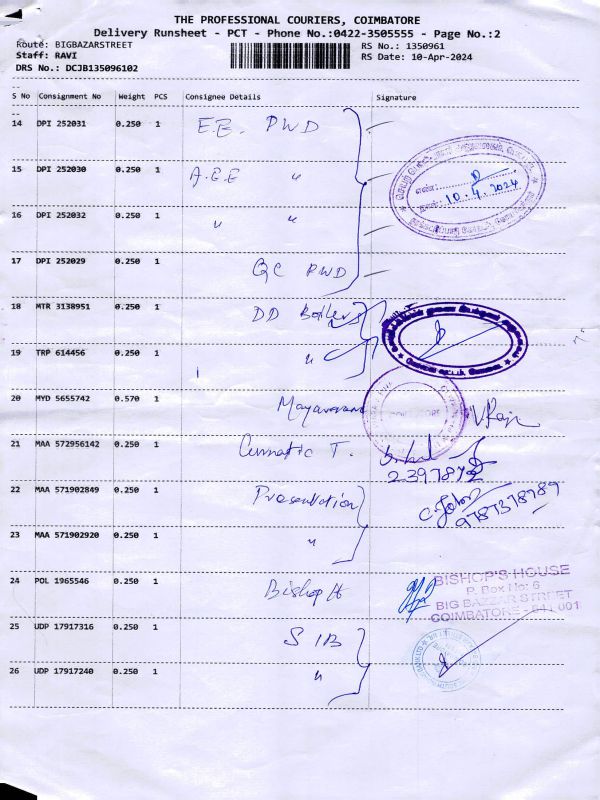 THE PROFESSIONAL COURIERS, COIMBATORE
Delivery Runsheet - PCT - Phone No.:0422-3505555 - Page No.:2
Route: BIGBAZARSTREET
RS No.: 1350961
Staff: RAVI
RS Date: 10-Apr-2024
DRS No.: DCJB135096102
S No Consignment No Weight PCS Consignee Details Signature
14 DPI 252031 0.250 1 E.E. PWD
15 DPI 252030 0.250 1 A.E.E "
10.4.2024
16 DPI 252032 0.250 1 " "
17 DPI 252029 0.250 1 QC PWD
18 MTR 3138951 0.250 1 DD Boilers
19 TRP 614456 0.250 1 "
20 MYD 5655742 0.570 1 V.Raja
21 MAA 572956142 0.250 1 T.
22 MAA 571902849 0.250 1 Presentation
9787378789
23 MAA 571902920 0.250 1 "
24 POL 1965546 0.250 1 Bishop H
BISHOP'S HOUSE
P. Box No: 6
BIG BAZAAR STREET
COIMBATORE - 641 001
25 UDP 17917316 0.250 1 S I B
26 UDP 17917240 0.250 1 "